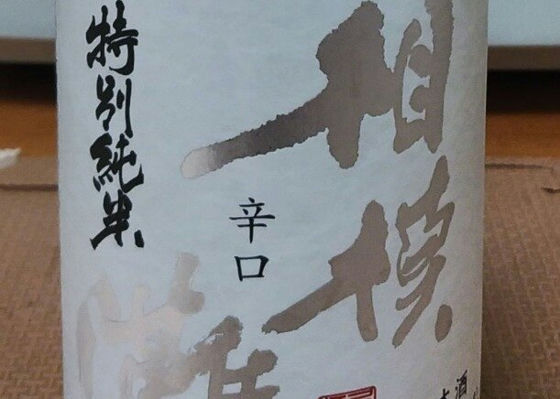 相模
灘
辛口
特別純米
酒